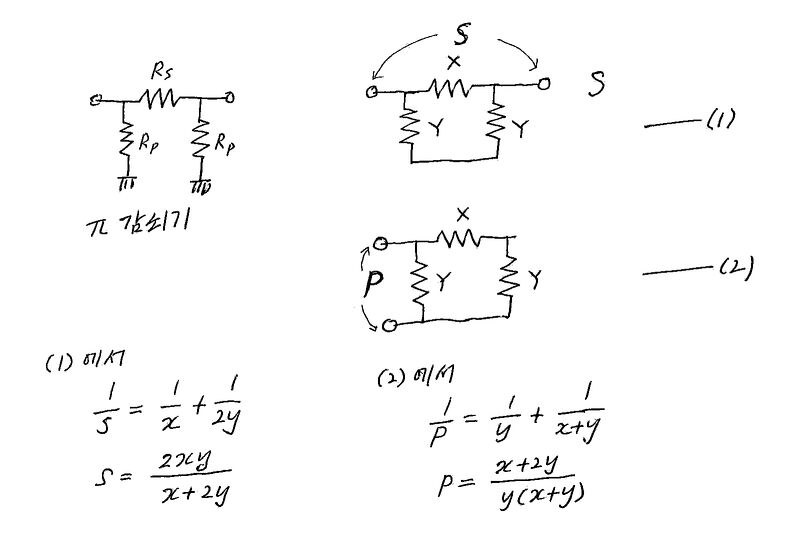 Rs
Rp
Rp
π 감쇠기
S
X
Y
Y
S
(1)
X
P
Y
Y
(2)
(1) 에서
1/S = 1/x + 1/2y
S = 2xy/x+2y
(2) 에서
1/P = 1/y + 1/x+y
P = x+2y/y(x+y)